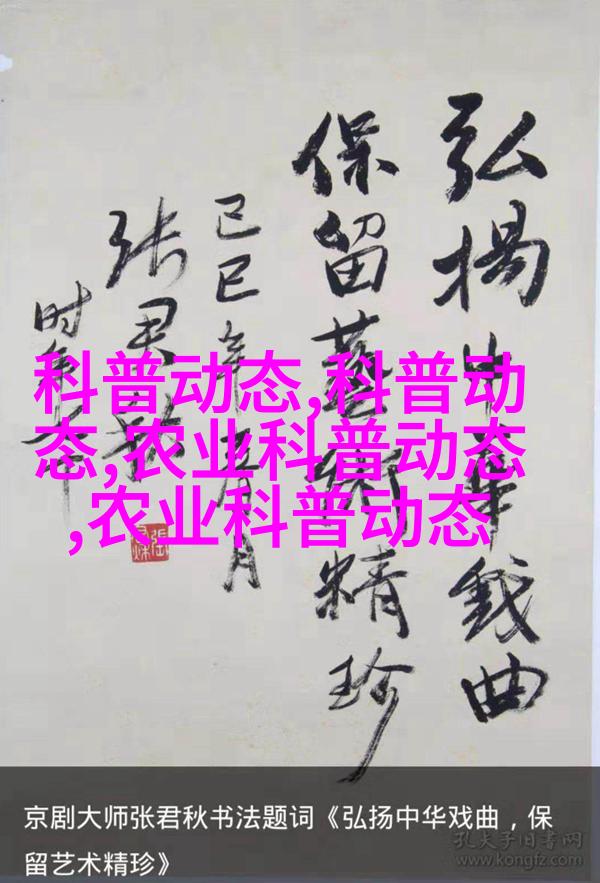 弘揚中華戲曲
保留藝術精珍
己巳年月
张君秋
时年
科普动态,科普动
态,农业科普动态
,农业科普动态
京剧大师张君秋书法题词《弘扬中华戏曲，保
留艺术精珍》
孔夫子旧书网
www.kongfz.com